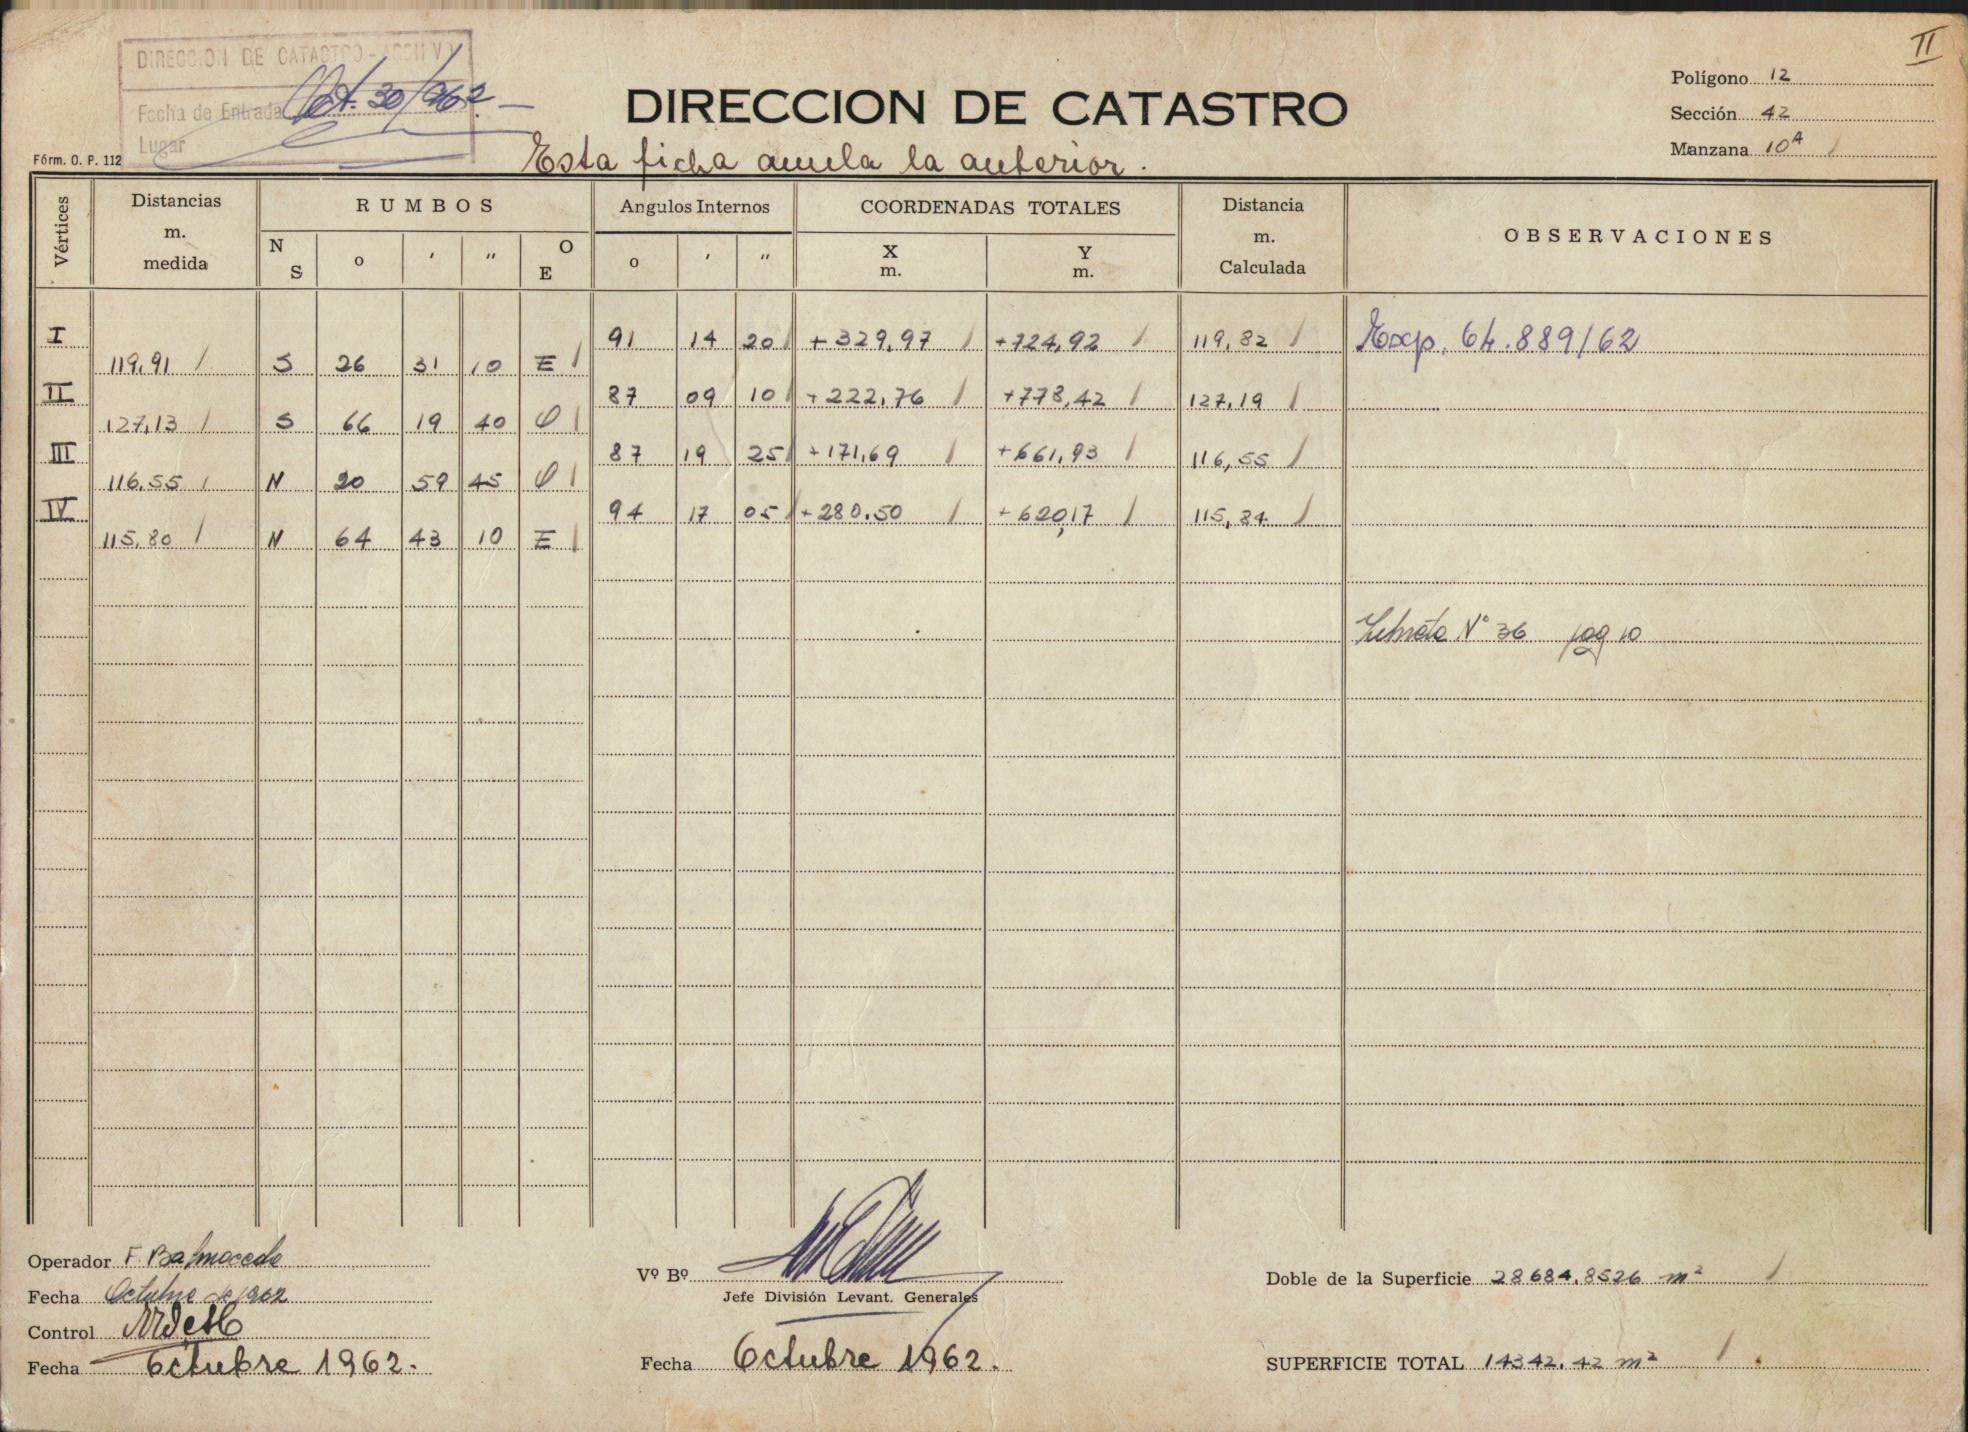 II
DIRECCION DE CATASTRO - ARCHIVO
Fecha de Entrada Oct. 30/962
Lugar
Fórm. O. P. 112
DIRECCION DE CATASTRO
Esta ficha anula la anterior.
Polígono 12
Sección 42
Manzana 10A
Vértices Distancias m. medida RUMBOS Angulos Internos COORDENADAS TOTALES Distancia m. Calculada OBSERVACIONES
N S o ' " O E o ' " X m. Y m.
I 91 14 20 +329,97 +724,92 119,82 Exp. 64.889/62
119,91 S 26 31 10 E
II 87 09 10 +222,76 +778,42 127,19
127,13 S 66 19 40 O
III 87 19 25 +171,69 +661,93 116,55
116,55 N 20 59 45 O
IV 94 17 05 +280,50 +620,17 115,84
115,80 N 64 43 10 E
Libreta Nº 36 pag 10
Operador F. Balmaceda
Fecha Octubre de 1962
Control
Fecha Octubre 1962.
Vº Bº
Jefe División Levant. Generales
Fecha Octubre 1962.
Doble de la Superficie 28684,8526 m²
SUPERFICIE TOTAL 14342,42 m²